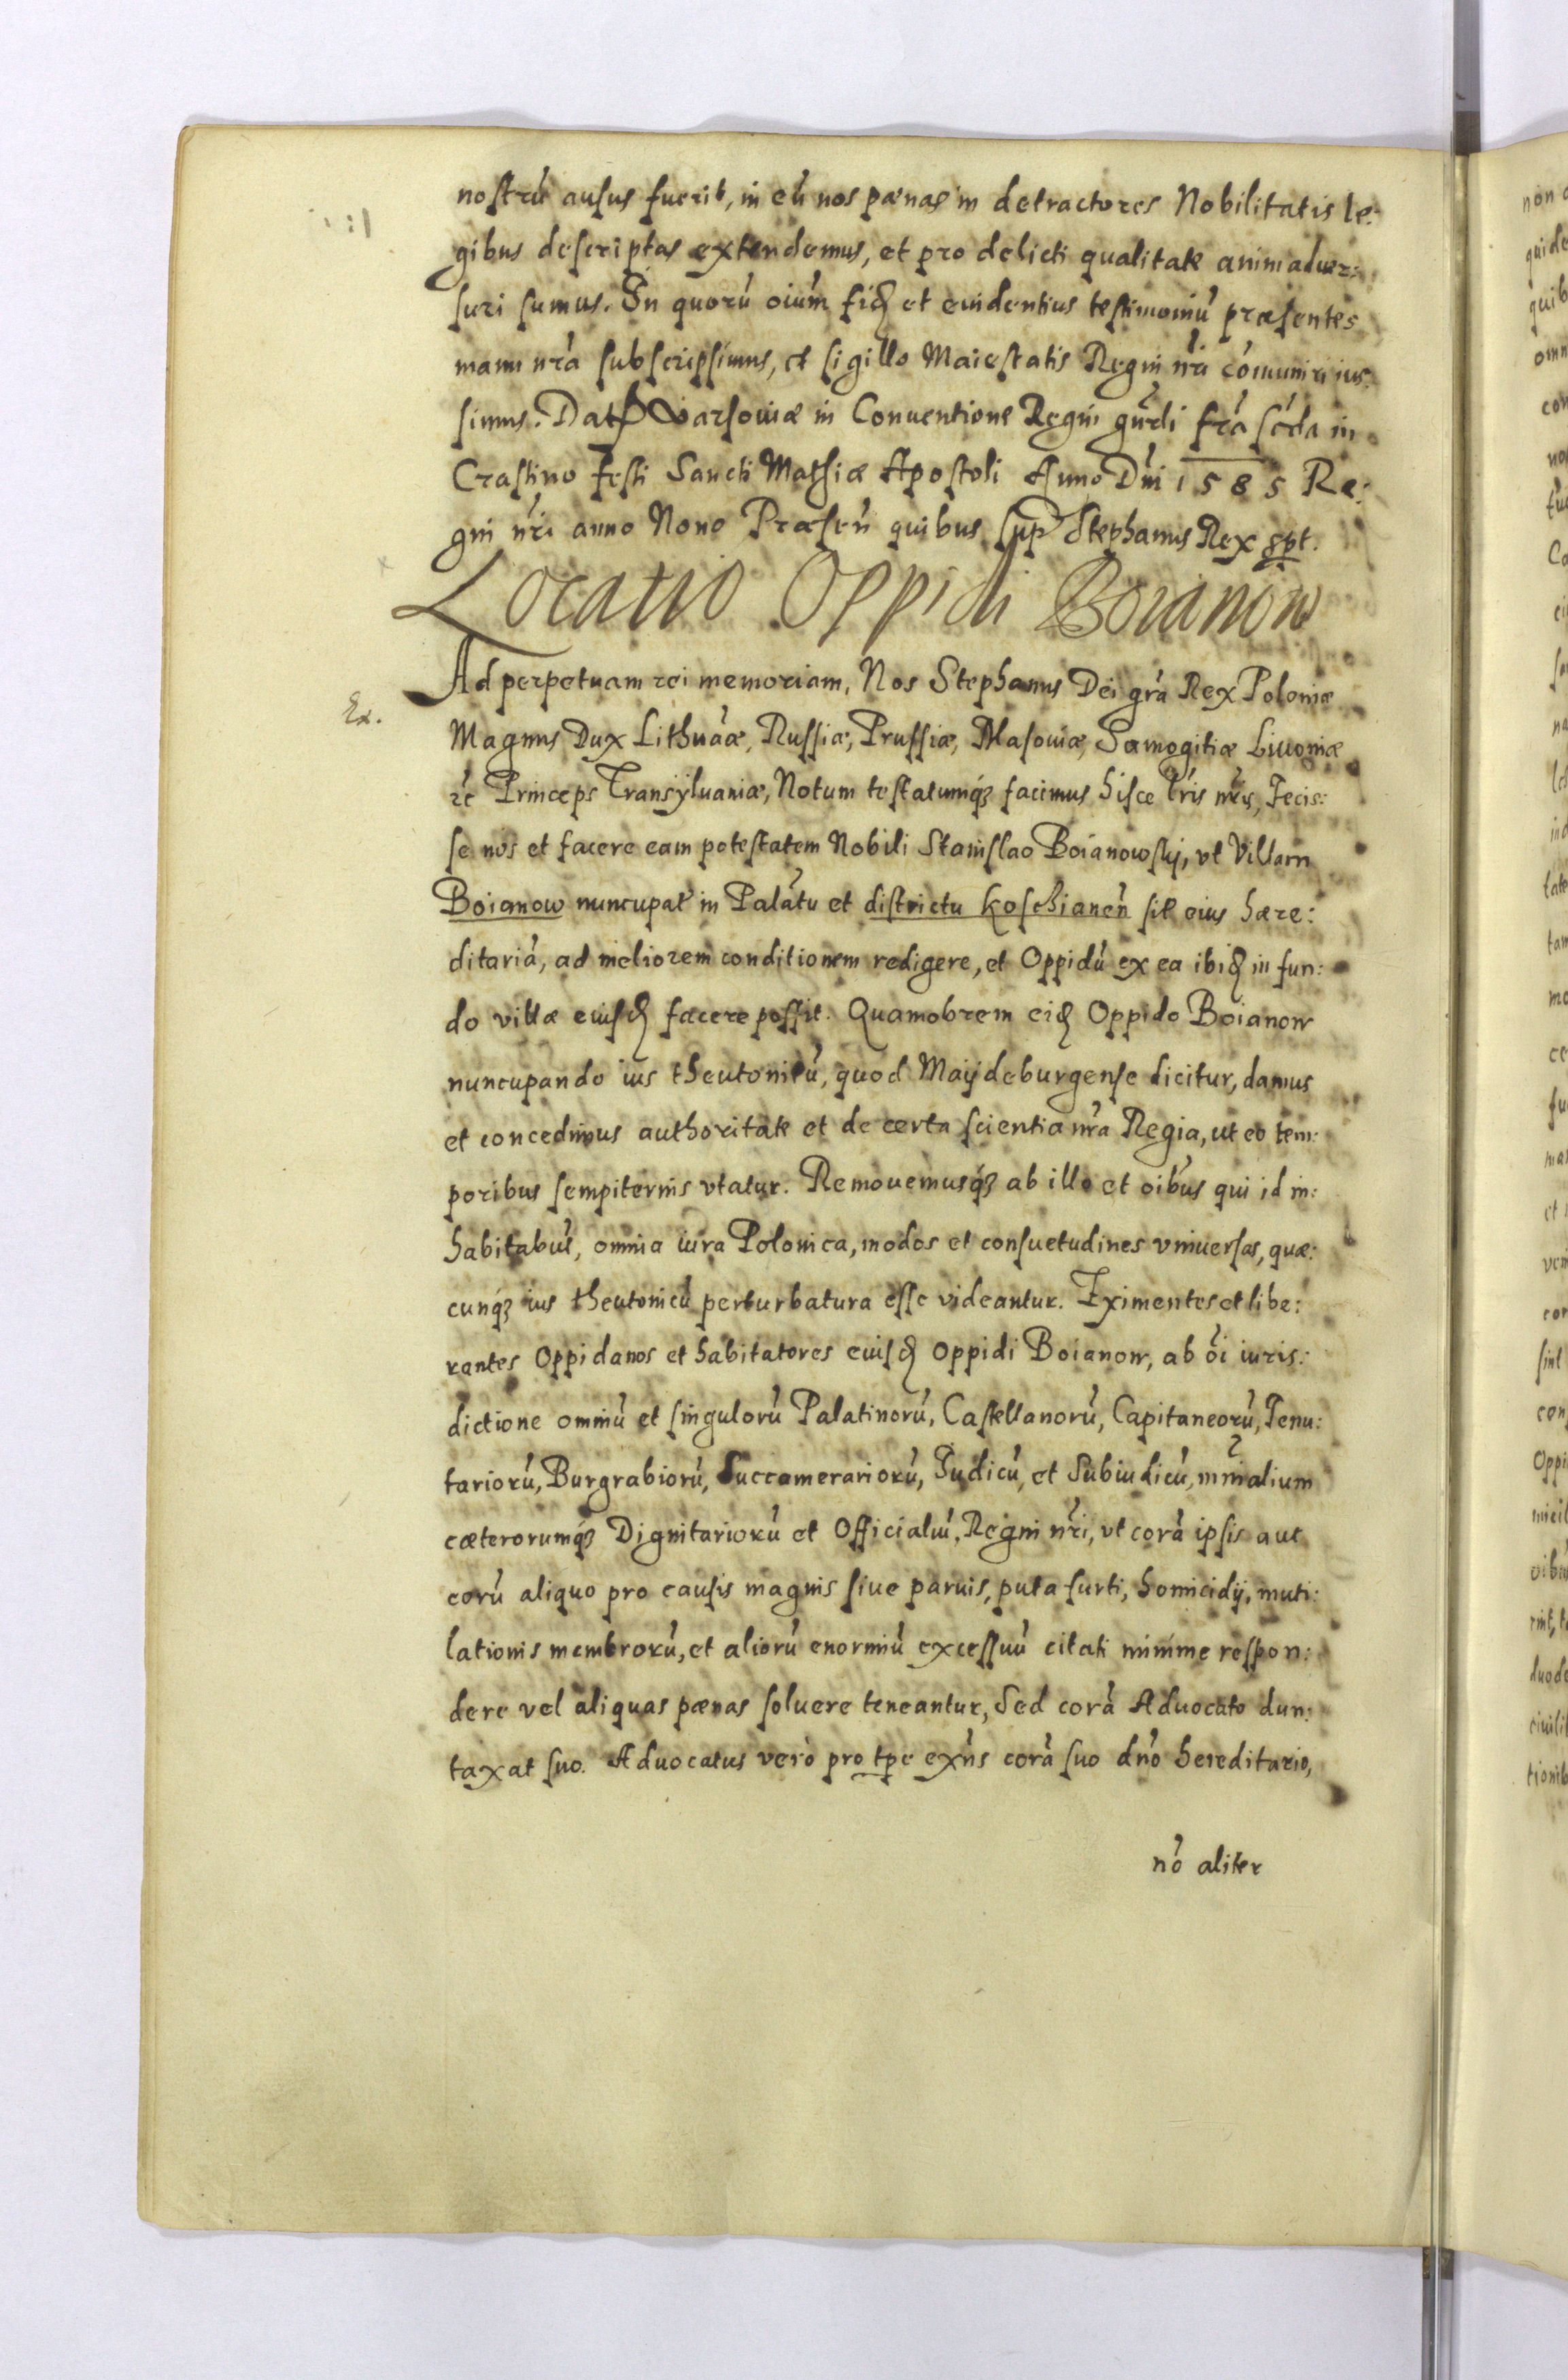 nostrũ ausus fuerit, in eũ nos pænas in detractores Nobilitatis le:
gibus descriptas extendemus, et pro delicti qualitate animaduer:
suri sumus. In quorũ oiũm fidẽ et euidentius testimoniũ præsentes
manu nrã subscripsimus, et sigillo Maiestatis Regni nrĩ cõmuniri ius:
simus. Dat Varsouiæ in Conuentione Regni gnrãli frã scda in
Crastino festi Sancti Mathiæ Apostoli Anno Dnĩ 1585 Re:
gni nrĩ anno Nono Præsen̄ quibus sup̃ Stephanus Rex spt.
Locatio Oppidi Boianow
Ad perpetuam rei memoriam, Nos Stephanus Dei grã Rex Poloniæ
Ex.
Magnus Dux Lithuãæ, Russiæ, Prussiæ, Masouiæ, Samogitiæ Liuoniæ
ꝛc Princeps Transyluaniæ, Notum testatumq́ꝫ facimus hisce lr̃is nrĩs, Fecis:
se nos et facere eam potestatem Nobili Stanislao Boianowsky, vt Villam
Boianow nuncupat̃ in Palãtu et districtu Koschianeñ sit̃ eius hære:
ditariã, ad meliorem conditionem redigere, et Oppidũ ex ea ibidẽ in fun:
do villæ eiusdẽ facere possit. Quamobrem eidẽ Oppido Boianow
nuncupando ius theutonicũ, quod Maydeburgense dicitur, damus
et concedimus authoritate et de certa scientia nrã Regia, ut eo tem:
poribus sempiternis vtatur. Remouemusq́ꝫ ab illo et oĩbus qui id in:
habitabũt, omnia iura Polonica, modos et consuetudines vniuersas, quæ:
cunq́ꝫ ius theutonicũ perturbatura esse videantur. Eximentes et libe:
rantes Oppidanos et habitatores eiusdẽ Oppidi Boianow, ab oĩ iuris:
dictione omniũ et singulorũ Palatinorũ, Castellanorũ, Capitaneorũ, Tenu:
tariorũ, Burgrabiorũ, Succamerariorũ, Iudicũ, et Subiudicũ, mĩnĩalium
cæterorumq́ꝫ Dignitariorũ et Officialiũ, Regni nrĩ, vt corã ipsis aut
eorũ aliquo pro causis magnis siue paruis, puta furti, homicidij, muti:
lationis membrorũ, et aliorũ enormiũ excessuũ citati minime respon:
dere vel aliquas pænas soluere teneantur, Sed corã Aduocato dun:
taxat suo. Aduocatus verò pro tpe exñs corã suo dnõ hereditario,
nõ aliter